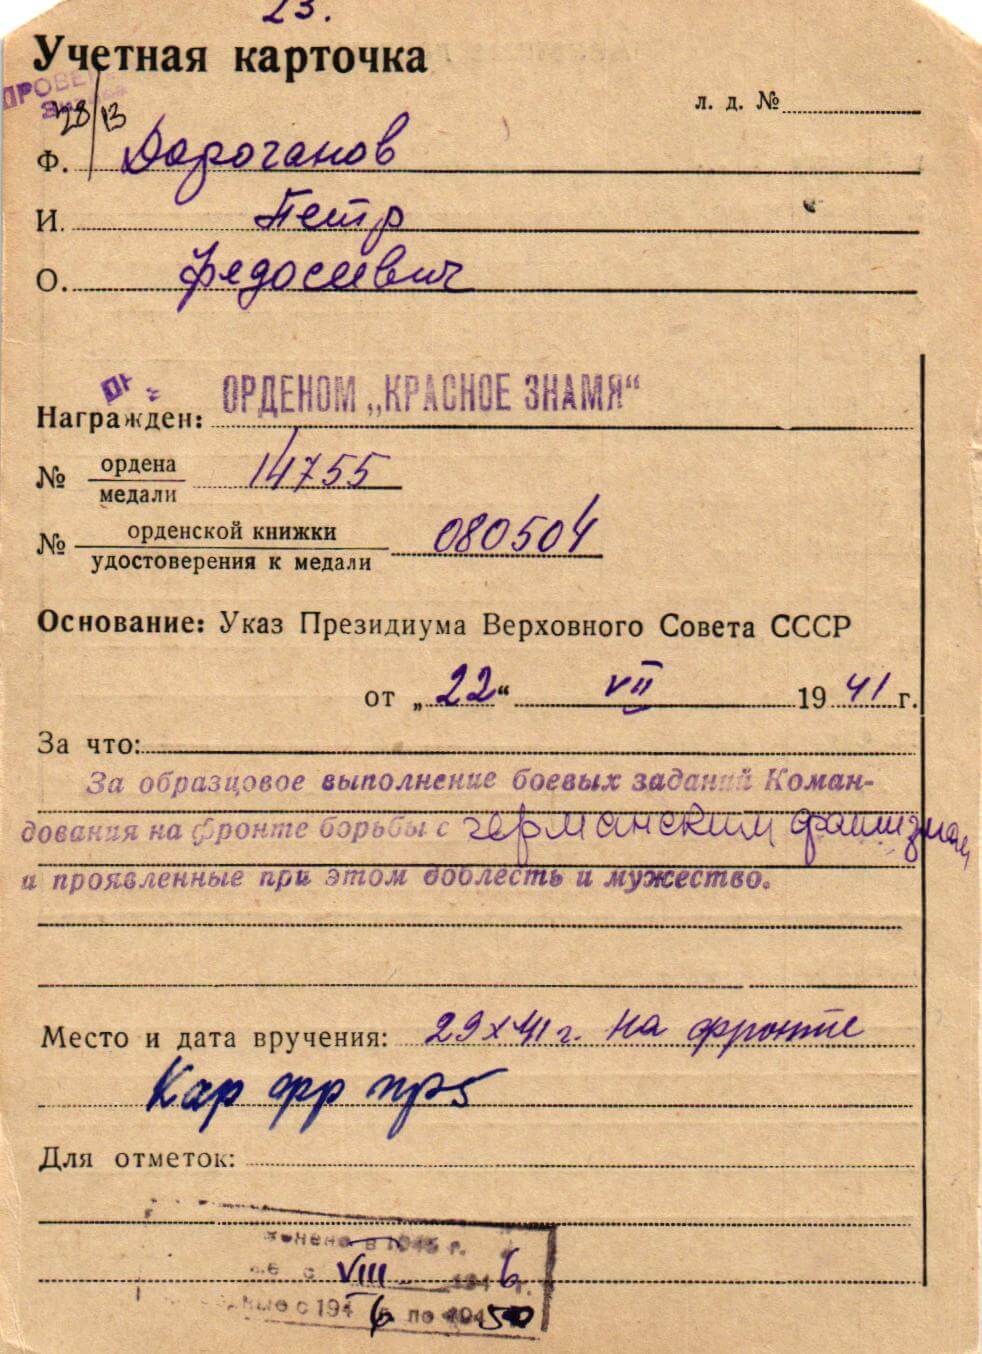 23.
Учетная карточка
л. д. №
28/13
Ф. Дароганов
И. Петр
О. Федосеевич
Награжден: ОРДЕНОМ „КРАСНОЕ ЗНАМЯ“
№ ордена
медали 14755
№ орденской книжки
удостоверения к медали 080504
Основание: Указ Президиума Верховного Совета СССР
от „22“ VII 1941 г.
За что:
За образцовое выполнение боевых заданий Коман-
дования на фронте борьбы с германским фашизмом
и проявленные при этом доблесть и мужество.
Место и дата вручения: 29 X 41 г. на фронте
Кар фр пр5
Для отметок:
в 1945 г.
с VIII 1946 г.
с 1946 по 1950